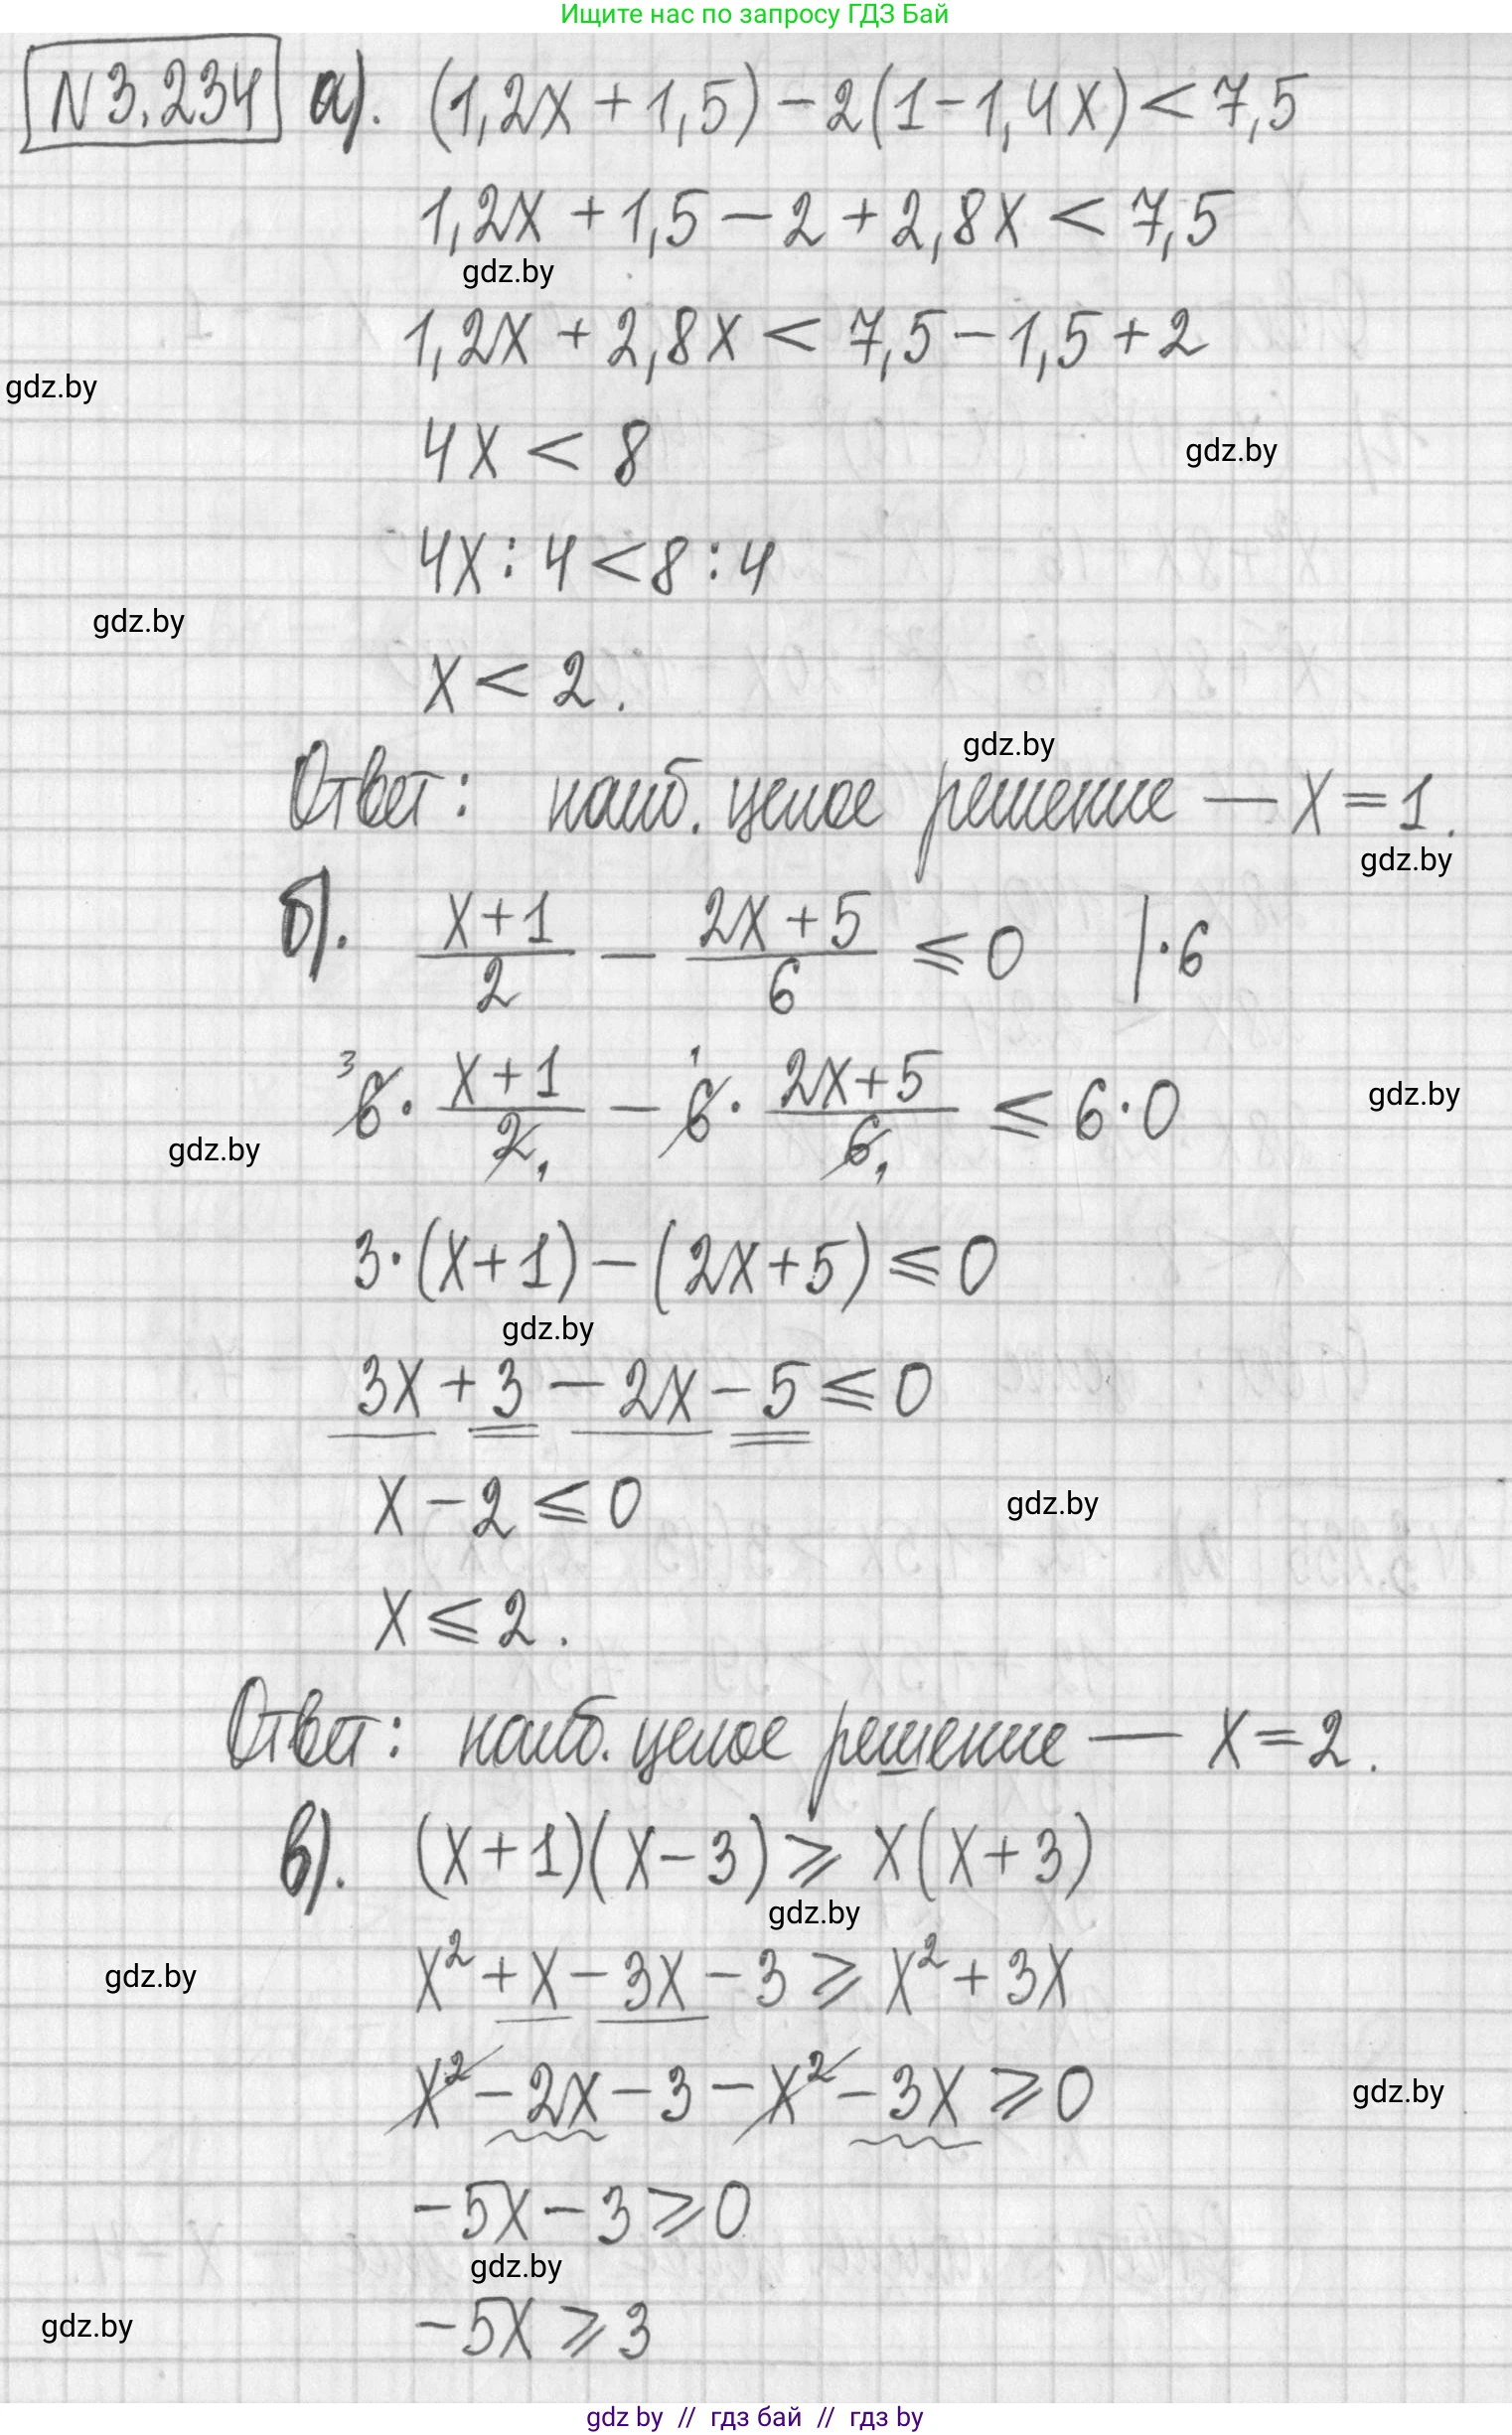 Ищите нас по запросу ГДЗ Бай
N3.234 а). (1,2x + 1,5) - 2(1 - 1,4x) < 7,5
1,2x + 1,5 - 2 + 2,8x < 7,5
gdz.by
1,2x + 2,8x < 7,5 - 1,5 + 2
gdz.by
4x < 8
gdz.by
4x : 4 < 8 : 4
gdz.by
x < 2.
gdz.by
Ответ: наиб. целое решение — x = 1.
gdz.by
б). (x+1)/2 - (2x+5)/6 ≤ 0 |·6
3 6 · (x+1)/2 1 - 1 6 · (2x+5)/6 1 ≤ 6·0
gdz.by
gdz.by
3·(x+1) - (2x+5) ≤ 0
gdz.by
3x + 3 - 2x - 5 ≤ 0
x - 2 ≤ 0
gdz.by
x ≤ 2.
Ответ: наиб. целое решение — x = 2.
в). (x+1)(x-3) ≥ x(x+3)
gdz.by
x² + x - 3x - 3 ≥ x² + 3x
gdz.by
x² - 2x - 3 - x² - 3x ≥ 0
gdz.by
-5x - 3 ≥ 0
gdz.by
-5x ≥ 3
gdz.by
gdz by // гдз бай // гдз by